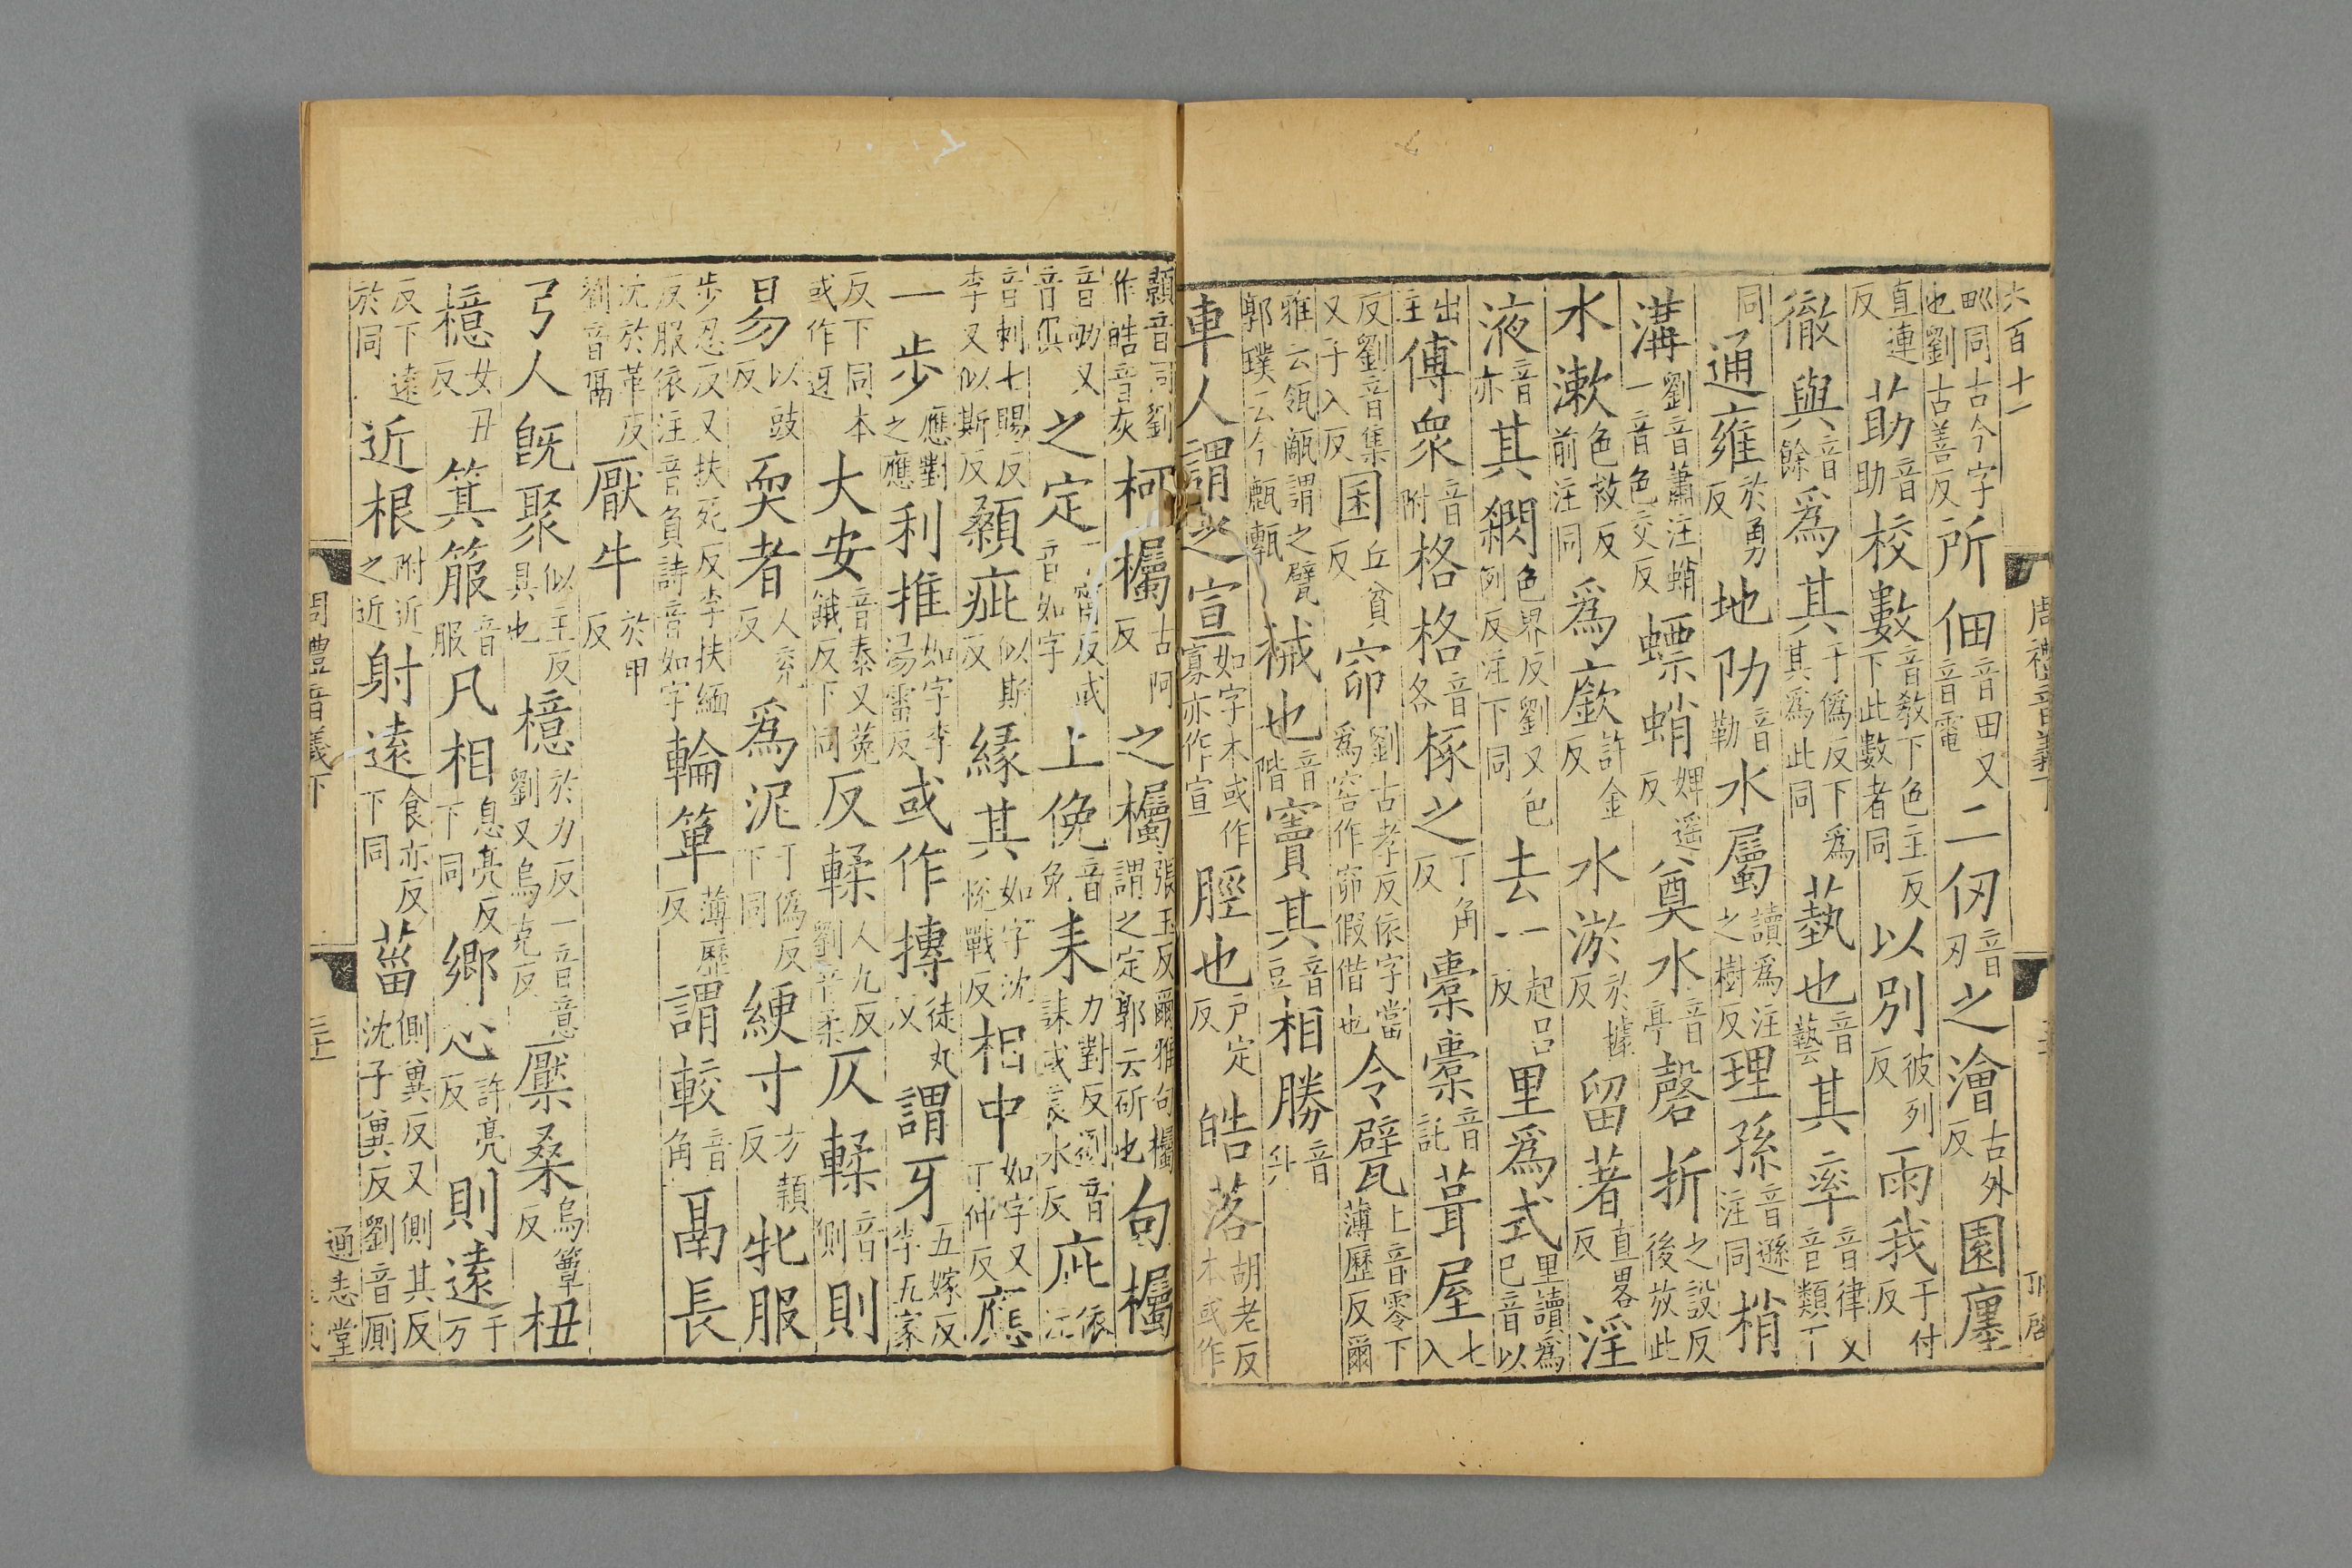 六百十一
周禮音義下
𤰕同古今字也劉古善反所佃音田又音電二仞音刃之澮古外反園廛
直連反莇音助校數音敎下色主反下此數者同以別彼列反雨我于付反
徹與音餘爲其于僞反下爲其爲此同蓺也音藝其率音律又音類下
同通雍於勇反地阞音勒水屬讀爲注之樹反理孫音遜注同梢
溝劉音蕭注蛸一音色交反螵蛸婢遥反奠水音亭磬折之設反後放此
水漱色救反前注同爲廞許金反水淤於據反留著直畧反淫
液音亦其綱色界反劉又色例反注下同去一起呂反里爲式里讀爲已音以
傅衆音附格格音各椓之丁角反橐橐音託葺屋七入
反劉音集又子入反囷丘貧反窌劉古孝反依字當爲窖作窌假借也令甓上音零下薄歷反爾
雅云瓴甋謂之甓郭璞云今㼾甎械也音階竇其音豆相勝音升
車人謂之宣如字本或作寡亦作宣脛也戶定反皓落胡老反本或作
顥音同劉作皓音灰柯欘古阿反之欘張玉反爾雅句欘謂之定郭云斫也句欘
音劬又音俱之定丁甯反或音如字上俛音免耒力對反劉音誄或良水反庛依注
音刺七賜反李又似斯反顙疵似斯反緣其如字沈悅戰反相中如字又丁仲反應
一步應對之應利推如字李湯雷反或作摶徒丸反謂牙五嫁反李五家
反下同本或作迓大安音泰又菟餓反下同反輮人九反劉音柔仄輮音側則
易以豉反耎者人兖反爲泥丁僞反下同綆寸方熲反牝服
步忍反又扶死反李扶緬反服依注音負詩音如字輪箄薄歷反謂較音角鬲長
沈於革反劉音隔厭牛於甲反
弓人旣聚似主反具也檍於力反一音意劉又烏克反壓桑烏簟反杻
女丑反檍箕箙音服凡相息亮反下同鄉心許亮反則遠于万
反下遠於同近根附近之近射遠食亦反下同菑側兾反又側其反沈子兾反劉音厠
周禮音義下
通志堂